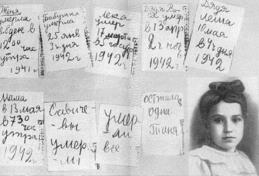 Женя
мерла
в
12.00 час
утра
1941 г.
Бабушка
умерла
25 янв
3 ч дня
1942 г
Лека
умер
17 марта
1942 г
Дядя
умер
в 13 апр
2 ч ноч
1942 г
Дядя
Леша
10 мая
в 4 ч дня
1942
Мама
в 13 мая
в 7.30
час
утра
1942 г
Савиче-
вы
умер
ли
умер
ли
все
остала
одна
Таня